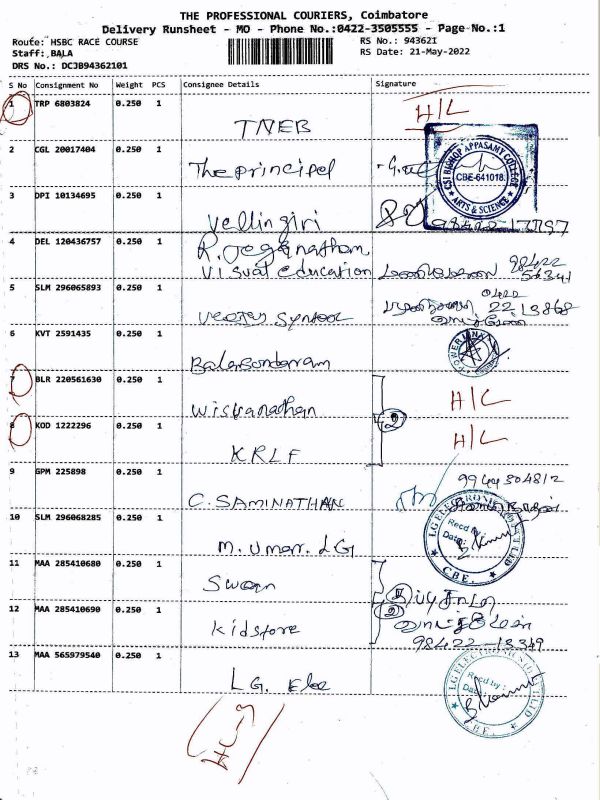 THE PROFESSIONAL COURIERS, Coimbatore
Delivery Runsheet - MO - Phone No.:0422-3505555 - Page-No.:1
Route: HSBC RACE COURSE
RS No.: 94362I
Staff: BALA
RS Date: 21-May-2022
DRS No.: DC3B94362101
S No Consignment No Weight PCS Consignee Details Signature
1 TRP 6803824 0.250 1 H/C
TNEB
2 CGL 20017404 0.250 1
The principel
CSI BISHOP APPASAMY COLLEGE
CBE-641018.
ARTS & SCIENCE
3 DPI 10134695 0.250 1
Vellingiri
4 DEL 120436757 0.250 1
R. Jeganathan
Visual education
98422
54341
5 SLM 296065893 0.250 1
0422
22 13868
6 KVT 2591435 0.250 1
Balasondaram
7 BLR 220561630 0.250 1 H/C
Wisvanathan
2
8 KOD 1222296 0.250 1 H/C
KRLF
9 GPM 225898 0.250 1 9944304812
C. SAMINATHAN
10 SLM 296068285 0.250 1
LG ELECTRONICS
Recd by
Date:
CBE.
M. Umarr. LG
11 MAA 285410680 0.250 1
Swan
12 MAA 285410690 0.250 1
2
Kidstore
98422-13349
13 MAA 565979540 0.250 1
LG ELECTRONICS
Recd by:
Date:
CBE.
LG. Ele
HC-3